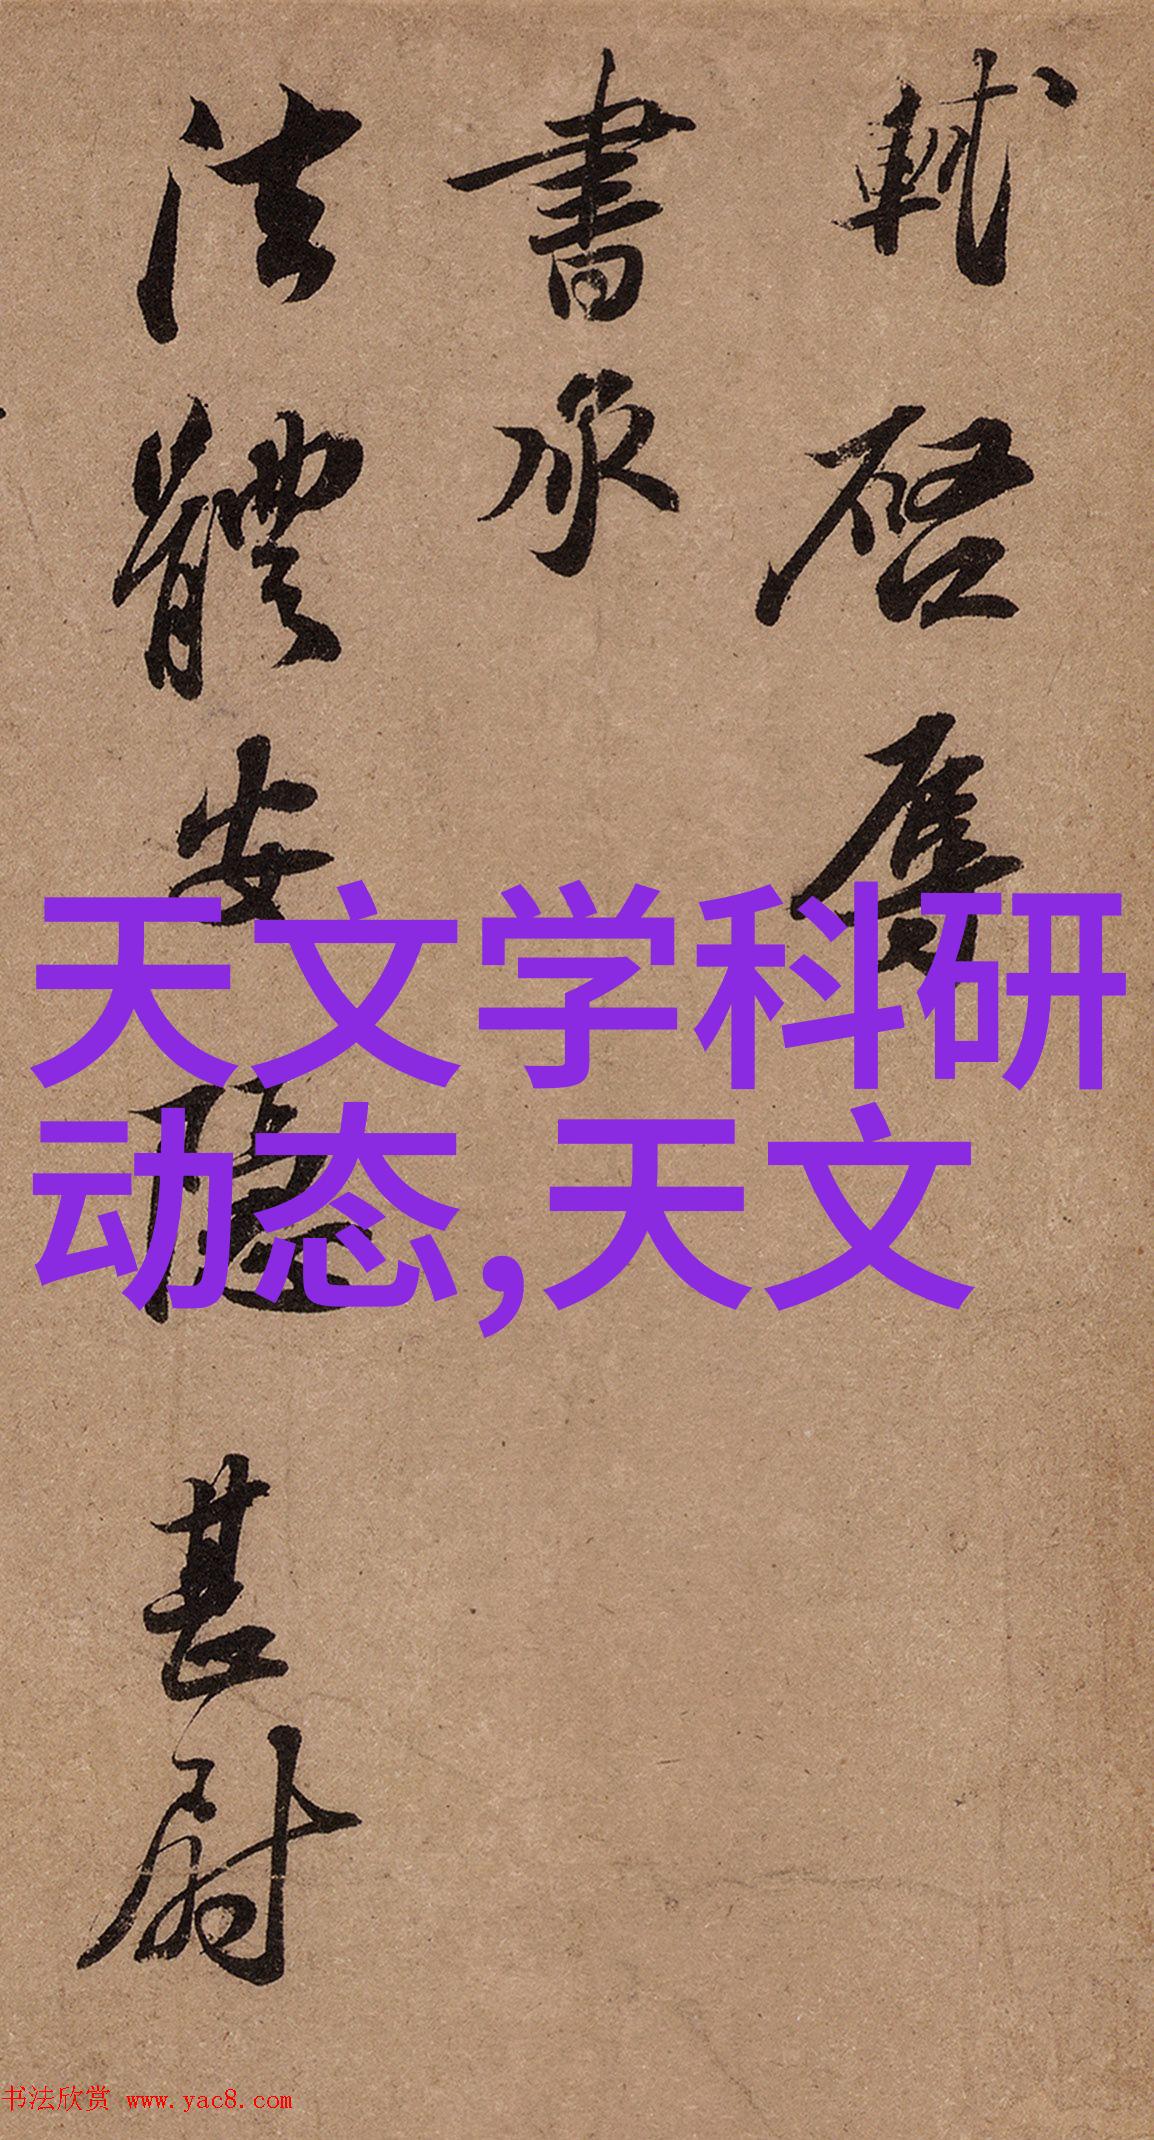 軾啓辱
書承
法體安隱甚尉
天文学科研
动态,天文
书法欣赏 www.yac8.com